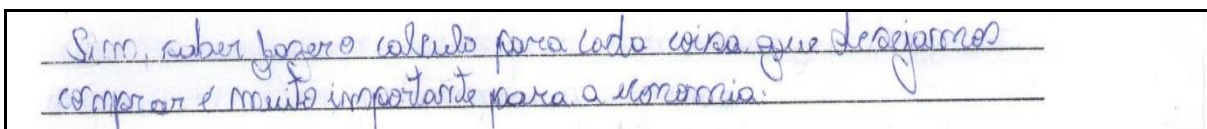 Sim, saber fazer o calculo para cada coisa que desejarmos
comprar é muito importante para a economia.